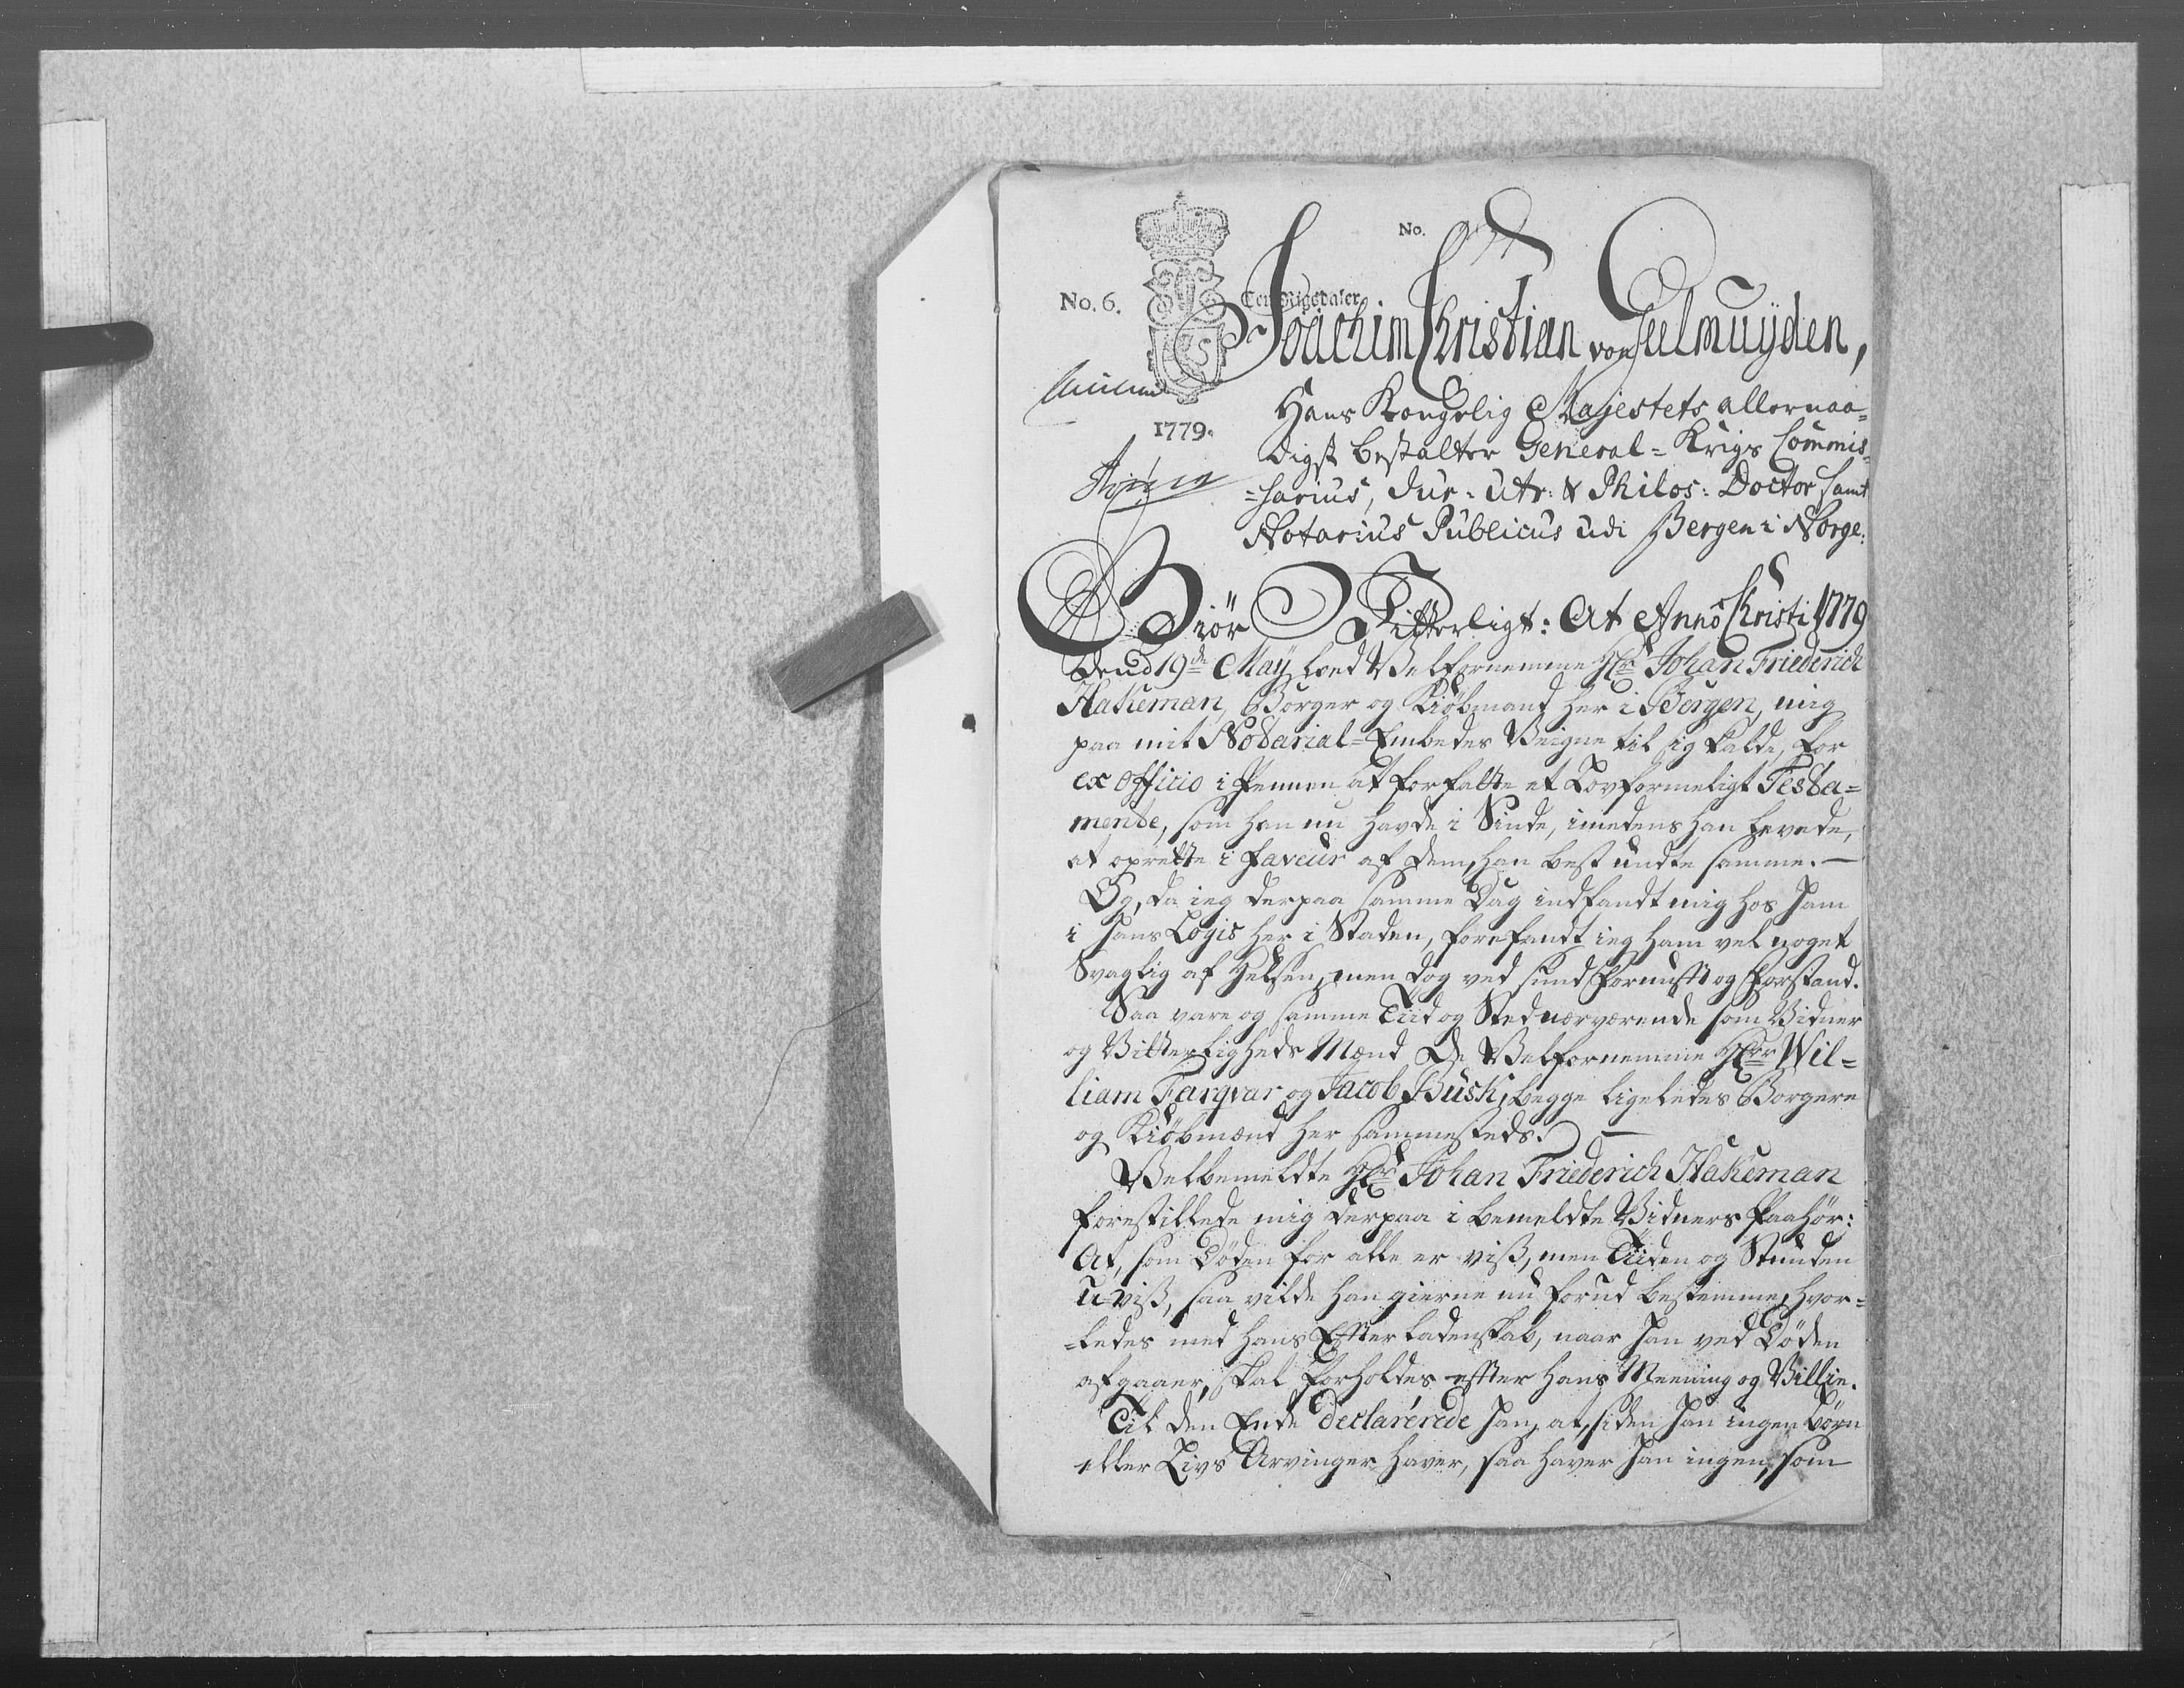 No.
No. 6.
Een Rigsdaler
Joachim Christian von Geelmuÿden,
Hans Kongelig Majestets allernaa=
1779.
digst bestalter General=Krigs Commis=
=sarius, Jur: Utr: & Philos: Doctor samt
Notarius Publicus udi Bergen i Norge:
Giör Vitterligt: At Anno Christi 1779
Dend 19de Maÿ loed Velfornemme Hr Johan Friederich
Hakeman, Borger og Kiöbmand her i Bergen, mig
paa mit Notarial=Embedes Veigne til sig kalde, for
ex officio i Pennen at forfatte et Lovformeligt Testa=
mente, som han nu havde i Sinde, imedens han levede,
at oprette i faveur af dem, han best undte samme. —
Og, da ieg derpaa samme Dag indfandt mig hos ham
i hans Logis her i Staden, forefandt ieg ham vel noget
Svaglig af Helsen, men dog ved sund Fornuft og Forstand.
Saa vare og samme Tiid og Sted nærværende som Vidner
og Vitterligheds Mænd De Velfornemme Hrr Wil=
liam Farqvar og Jacob Busk, begge ligeledes Borgere
og Kiöbmænd her sammesteds. —
Velbemeldte Hr Johan Friederich Hakeman
forestillede mig derpaa i bemeldte Vidners Paahör:
At, som Döden for alle er viß, men Tiiden og Stunden
u-viß, saa vilde han gierne nu forud bestemme, hvor=
=ledes med hans Efterladenskab, naar han ved Döden
afgaaer, skal forholdes efter hans Meening og Villie.
Til den Ende declarérede han, at, siden han ingen Börn
eller Livs Arvinger haver, saa haver han ingen, som